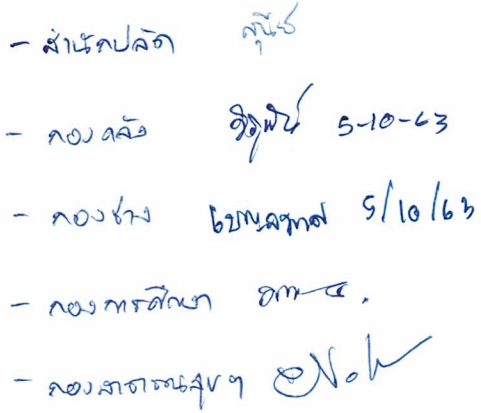 - สำนักปลัด สุนีย์
- กองคลัง 5-10-63
- กองช่าง 5/10/63
- กองการศึกษา
- กองสาธารณสุขฯ